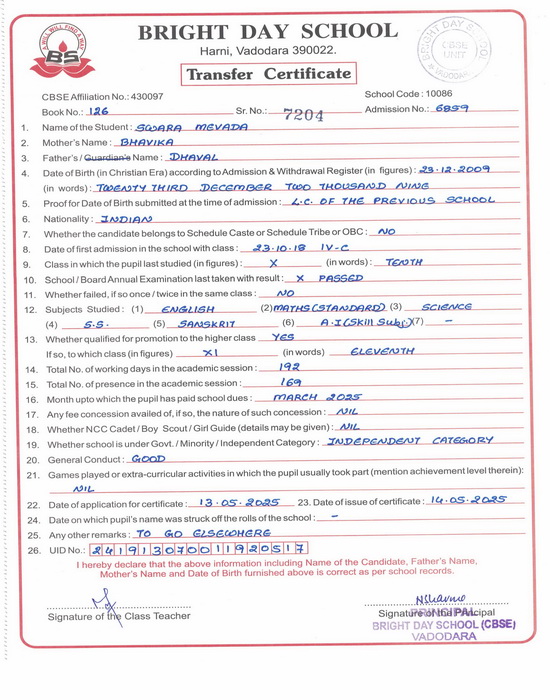 A WILL WILL FIND A WAY
BS
BRIGHT DAY SCHOOL
Harni, Vadodara 390022.
Transfer Certificate
BRIGHT DAY SCHOOL
CBSE
UNIT
VADODARA
CBSE Affiliation No.: 430097
School Code : 10086
Book No.: 126
Sr. No.: 7204
Admission No.: 6859
1. Name of the Student : SWARA MEVADA
2. Mother's Name : BHAVIKA
3. Father's / Guardian's Name : DHAVAL
4. Date of Birth (in Christian Era) according to Admission & Withdrawal Register (in figures) : 23.12.2009
(in words) : TWENTY THIRD DECEMBER TWO THOUSAND NINE
5. Proof for Date of Birth submitted at the time of admission : L.C. OF THE PREVIOUS SCHOOL
6. Nationality : INDIAN
7. Whether the candidate belongs to Schedule Caste or Schedule Tribe or OBC : NO
8. Date of first admission in the school with class : 23.10.18 IV-C
9. Class in which the pupil last studied (in figures) : X (in words) : TENTH
10. School / Board Annual Examination last taken with result : X PASSED
11. Whether failed, if so once / twice in the same class : NO
12. Subjects Studied : (1) ENGLISH (2) MATHS (STANDARD) (3) SCIENCE
(4) S.S. (5) SANSKRIT (6) A.I (Skill Subj.) (7) –
13. Whether qualified for promotion to the higher class YES
If so, to which class (in figures) XI (in words) ELEVENTH
14. Total No. of working days in the academic session : 192
15. Total No. of presence in the academic session : 169
16. Month upto which the pupil has paid school dues : MARCH 2025
17. Any fee concession availed of, if so, the nature of such concession : NIL
18. Whether NCC Cadet / Boy Scout / Girl Guide (details may be given) : NIL
19. Whether school is under Govt. / Minority / Independent Category : INDEPENDENT CATEGORY
20. General Conduct : GOOD
21. Games played or extra-curricular activities in which the pupil usually took part (mention achievement level therein):
NIL
22. Date of application for certificate : 13.05.2025 23. Date of issue of certificate : 14.05.2025
24. Date on which pupil's name was struck off the rolls of the school : –
25. Any other remarks : TO GO ELSEWHERE
26. UID No.: 241913070011920517
I hereby declare that the above information including Name of the Candidate, Father's Name,
Mother's Name and Date of Birth furnished above is correct as per school records.
Signature of the Class Teacher
Signature of the Principal
PRINCIPAL
BRIGHT DAY SCHOOL (CBSE)
VADODARA